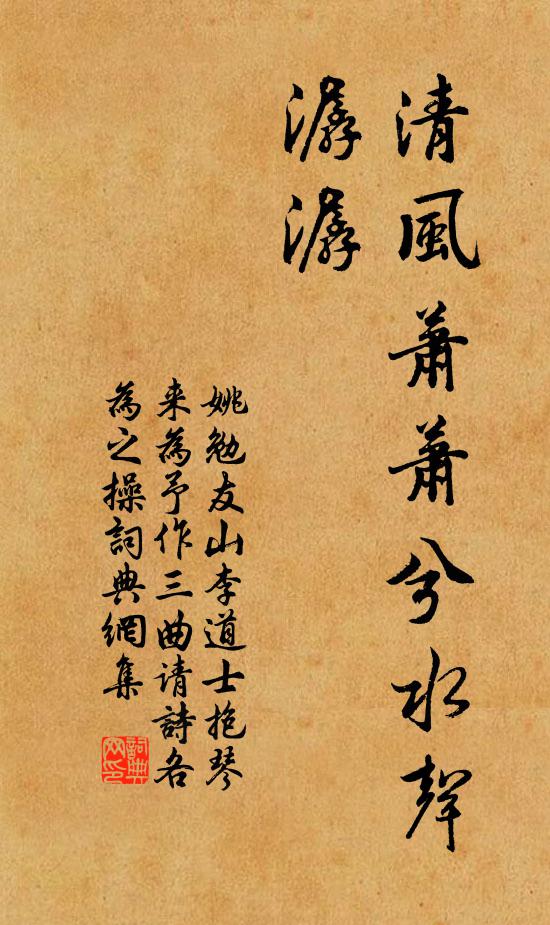 清風蕭蕭兮水聲
潺潺
姚勉友山李道士抱琴
来為予作三曲请詩各
為之操詞典網集
詞典
网印